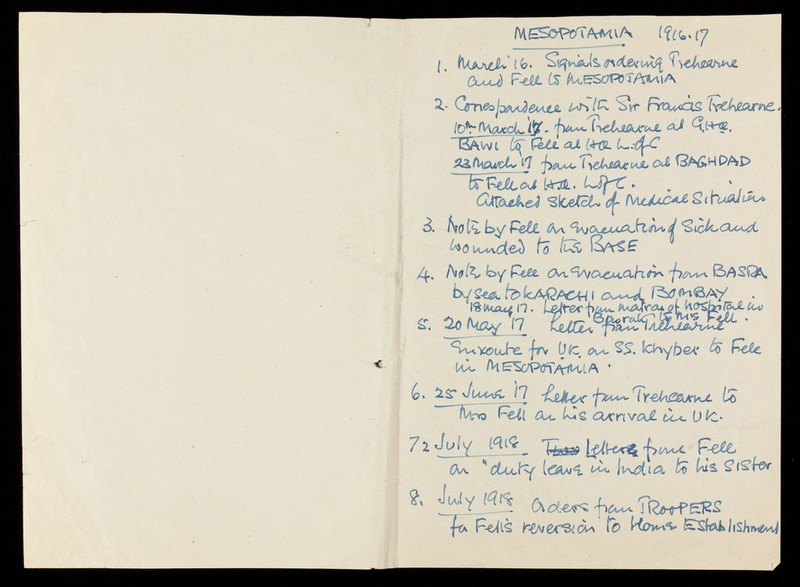 MESOPOTAMIA 1916.17
1. March 16. Signals ordering Trehearne
and Fell to MESOPOTAMIA
2. Correspondence with Sir Francis Trehearne.
10th March 17. from Trehearne at G.H.Q.
BAWI to Fell at H.Q. L of C
23 March 17 from Trehearne at BAGHDAD
to Fell at H.Q. L of C.
Attached Sketch of Medical Situation
3. Note by Fell on Evacuation of Sick and
wounded to the BASE
4. Note by Fell on Evacuation from BASRA
by sea to KARACHI and BOMBAY
18 May 17. Letter from matron of hospital in
Basrah to Mrs Fell.
5. 20 May 17 Letter from Trehearne
Enroute for UK. on SS. Khyber to Fell
in MESOPOTAMIA.
6. 25 June 17 Letter from Trehearne to
Mrs Fell on his arrival in UK.
7 2 July 1918 Letter from Fell
on "duty leave in India to his Sister
8. July 1918 Orders from TROOPERS
for Fell's reversion to Home Establishment